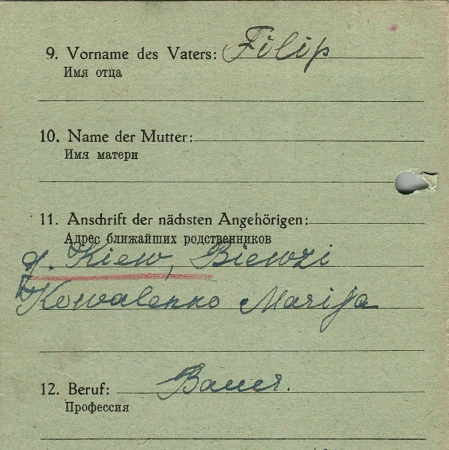 9. Vorname des Vaters: Filip
Имя отца
10. Name der Mutter:
Имя матери
11. Anschrift der nächsten Angehörigen:
Адрес ближайших родственников
g. Kiew, Biewzi
Kowalenko Marija
12. Beruf: Bauer.
Профессия